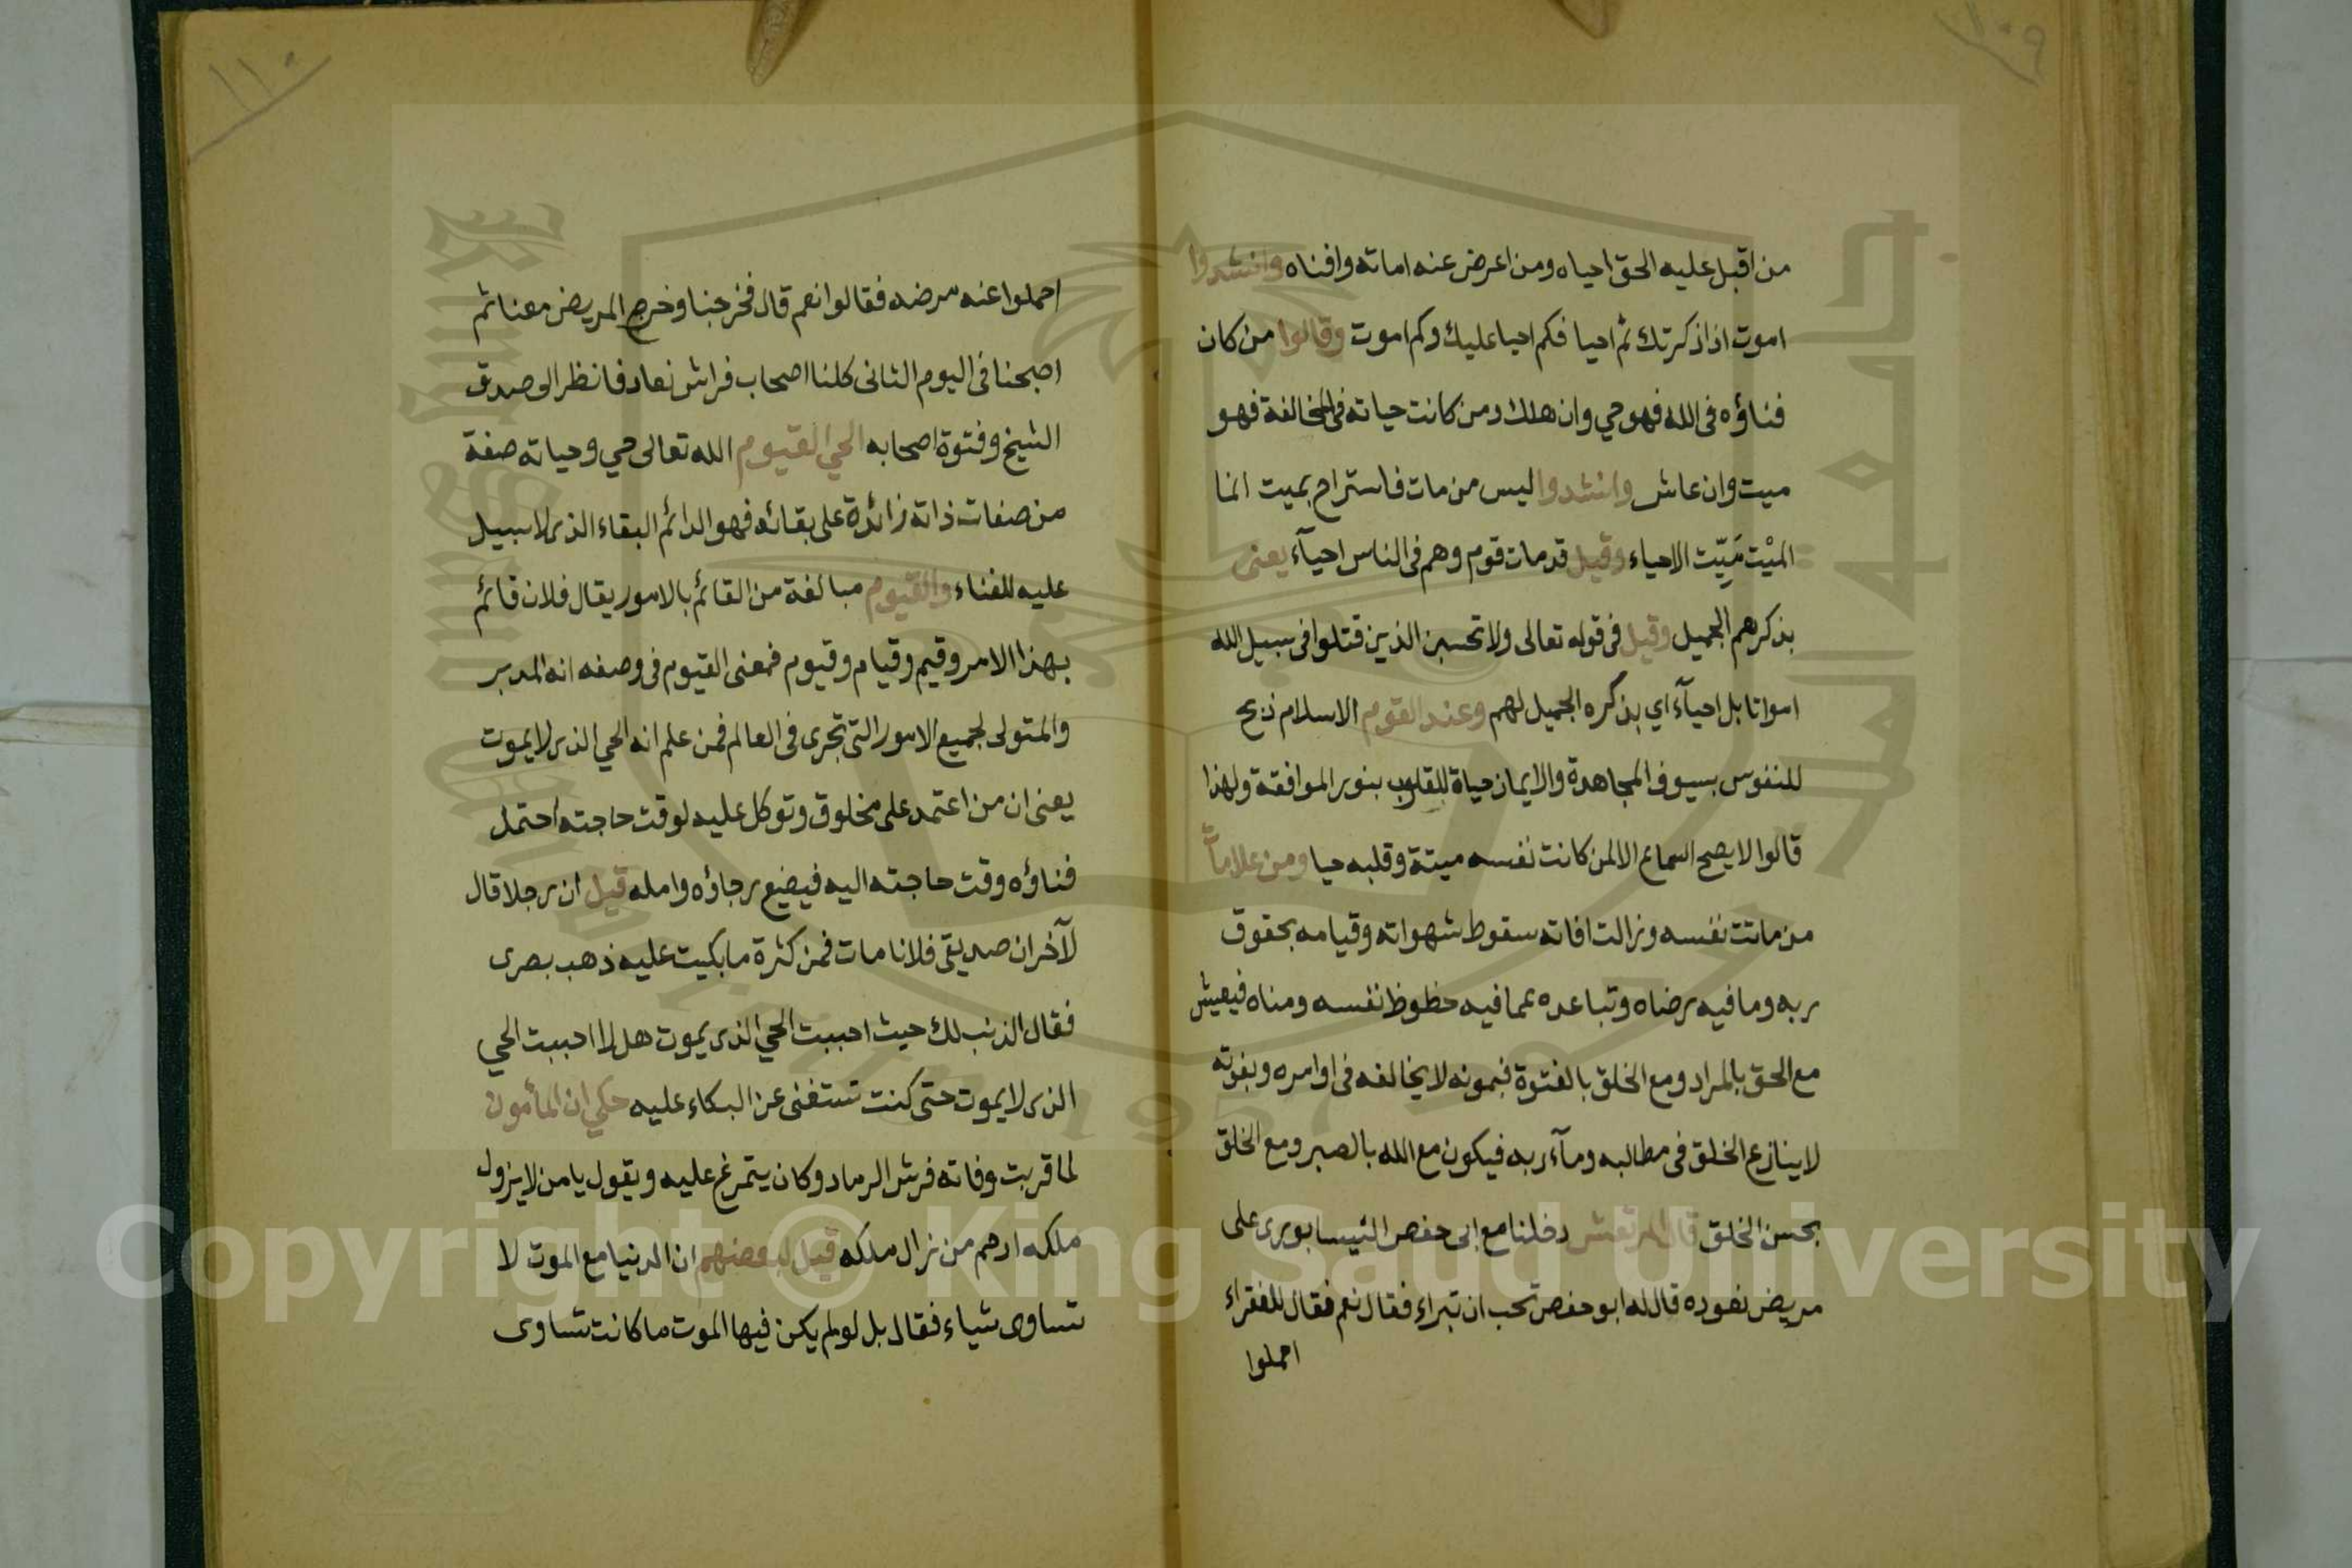 ١٠٩
من اقبل عليه الحق احياه ومن اعرض عنه اماته وافناه وانشدوا
اموت اذا ذكرتك ثم احيا فكم احيا عليك وكم اموت وقالوا من كان
فناؤه فى الله فهو حي وان هلك ومن كانت حياته فى المخالفة فهو
ميت وان عاش وانشدوا ليس من مات فاستراح بميت انما
الميْت ميِّت الاحياء وقيل قد مات قوم وهم فى الناس احيآء يعنى
بذكرهم الجميل وقيل فى قوله تعالى ولا تحسبن الذين قتلوا فى سبيل الله
امواتا بل احيآء اي بذكره الجميل لهم وعند القوم الاسلام ذبح
للنفوس بسيوف المجاهدة والايمان حياة للقلوب بنور الموافقة ولهذا
قالوا لا يصح السماع الا لمن كانت نفسه ميتة وقلبه حيا ومن علامات
من ماتت نفسه وزالت افاته سقوط شهواته وقيامه بحقوق
ربه وما فيه رضاه وتباعده عما فيه حظوظ نفسه ومناه فيعيش
مع الحق بالمراد ومع الخلق بالفتوة فبمونه لا يخالفه فى اوامره وبفوته
لا ينازع الخلق فى مطالبه ومآء ربه فيكون مع الله بالصبر ومع الخلق
بحسن الخلق قال المرتعش دخلنا مع ابى حفص النيسابورى على
مريض نعوده قال له ابو حفص تحب ان تبراء فقال نعم فقال للفقراء
احملوا
١١٠
احملوا عنه مرضه فقالوا نعم قال فخرجنا وخرج المريض معنا ثم
اصبحنا فى اليوم الثانى كلنا اصحاب فراش نعاد فانظر الى صدق
الشيخ وفتوة اصحابه الحي القيوم الله تعالى حي وحياته صفة
من صفات ذاته زائدة على بقائه فهو الدائم البقاء الذى لا سبيل
عليه للفناء والقيوم مبالغة من القائم بالامور يقال فلان قائم
بهذا الامر وقيم وقيام وقيوم فمعنى القيوم فى وصفه انه المدبر
والمتولى لجميع الامور التى تجرى فى العالم فمن علم انه الحي الذى لا يموت
يعنى ان من اعتمد على مخلوق وتوكل عليه لوقت حاجته احتمل
فناؤه وقت حاجته اليه فيضيع رجاؤه وامله قيل ان رجلا قال
لآخر ان صديقى فلانا مات فمن كثرة ما بكيت عليه ذهب بصرى
فقال الذنب لك حيث احببت الحي الذى يموت هل لا احببت الحي
الذى لا يموت حتى كنت تستغنى عن البكاء عليه حكي ان المأمون
لما قربت وفاته فرش الرماد وكان يتمرغ عليه ويقول يا من لا يزول
ملكه ارحم من زال ملكه قيل لبعضهم ان الدنيا مع الموت لا
تساوى شياء فقال بل لو لم يكن فيها الموت ما كانت تساوى
Copyright © King Saud University